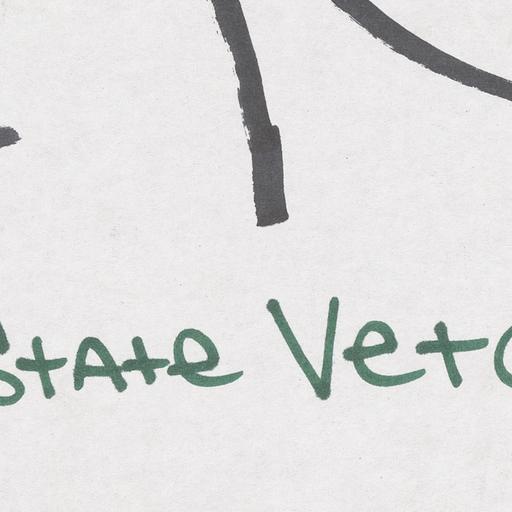 State Veto